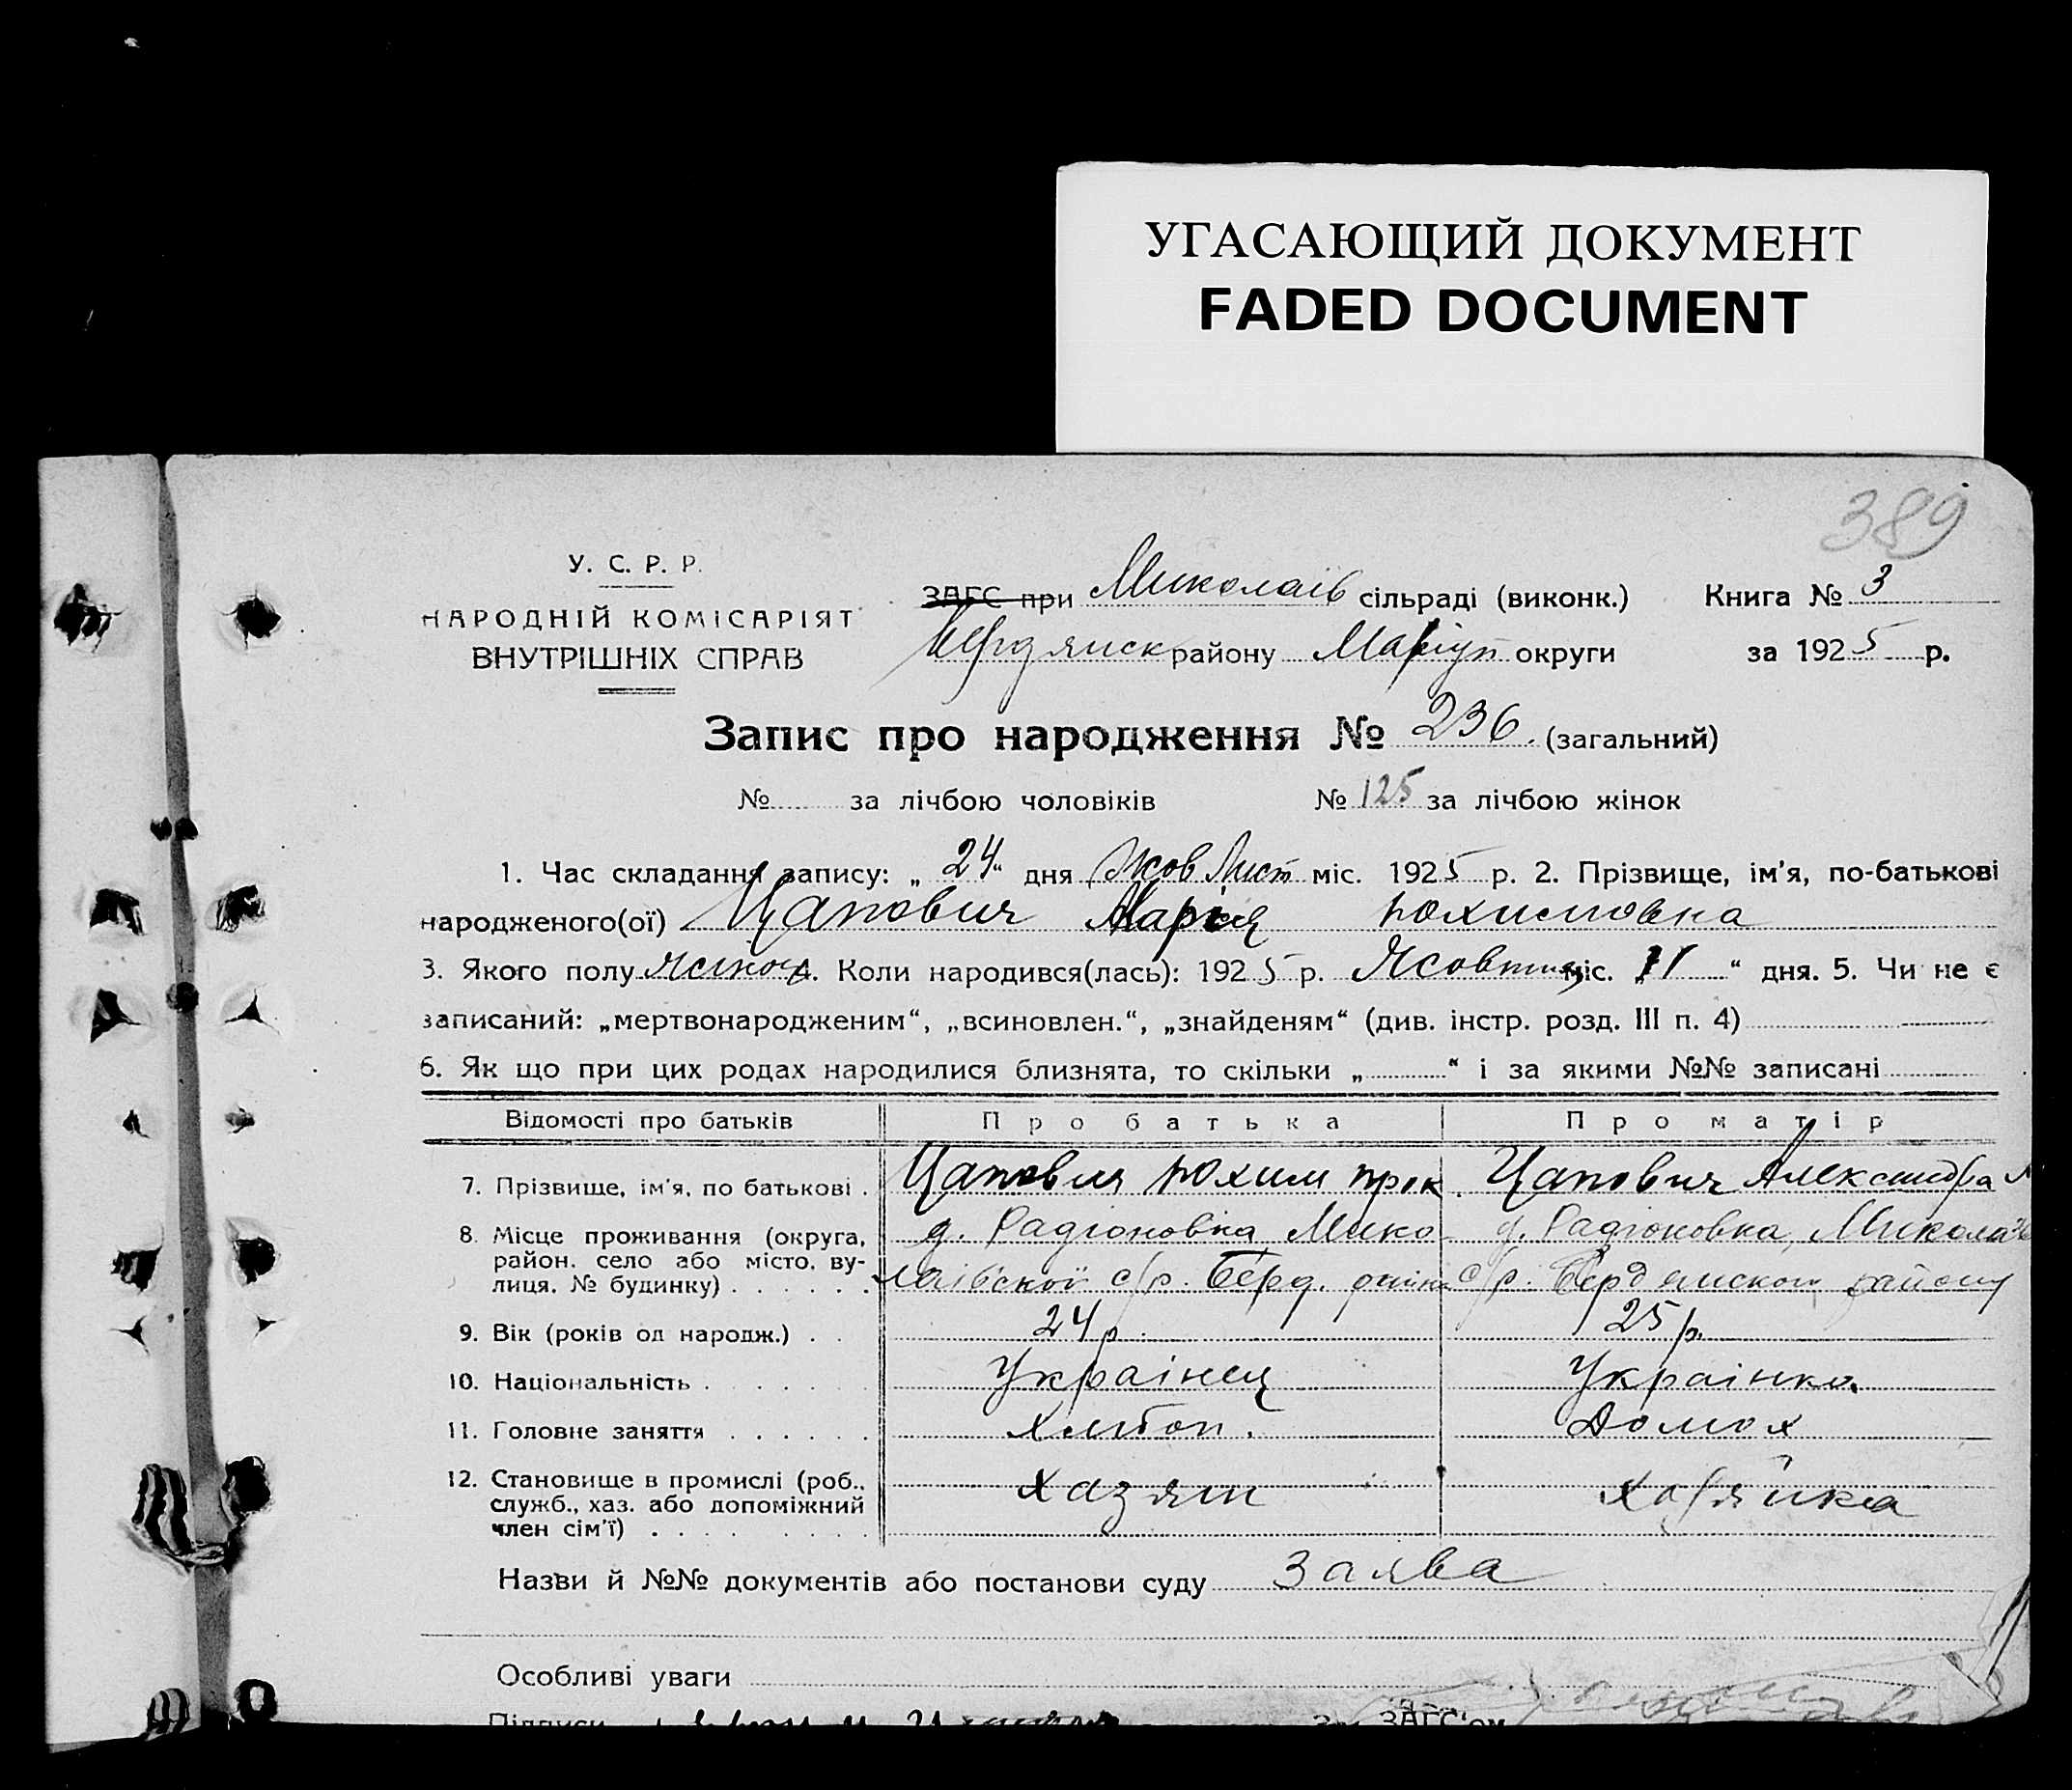 УГАСАЮЩИЙ ДОКУМЕНТ
FADED DOCUMENT
389
У. С. Р. Р.
НАРОДНІЙ КОМІСАРІЯТ
ВНУТРІШНІХ СПРАВ
ЗАГС при Миколаїв сільраді (виконк.) Книга № 3
Бердянск району Маріуп округи за 1925 р.
Запис про народження № 236. (загальний)
№ за лічбою чоловіків № 125 за лічбою жінок
1. Час складання запису: „24“ дня Жов Лист міс. 1925 р. 2. Прізвище, ім'я, по-батькові
народженого(ої) Цапович Марія Юхимовна
3. Якого полу жіноч 4. Коли народився(лась): 1925 р. Жовтня міс. „11“ дня. 5. Чи не є
записаний: „мертвонародженим“, „всиновлен.“, „знайденям“ (див. інстр. розд. III п. 4)
6. Як що при цих родах народилися близнята, то скільки „ “ і за якими №№ записані
Відомості про батьків Про батька Про матір
7. Прізвище, ім'я, по батькові . Цапович Юхим прок. Цапович Александра
8. Місце проживання (округа, д. Радіоновка, Мико д. Радіоновка, Микола
район, село або місто, ву-
лиця, № будинку) . . . . . . лаівскоі с/р. Берд. с/р. Бердянского району
9. Вік (років од народж.) . . 24 р. 25 р.
10. Національність . . . . . . Украінец Украінка
11. Головне заняття . . . . . . Хлібоп. Домох
12. Становище в промислі (роб.,
служб., хаз. або допоміжний Хазяін Хазяйка
член сім'ї) . . . . . . . .
Назви й №№ документів або постанови суду Заява
Особливі уваги
Підписи Зав. ЗАГС'ом